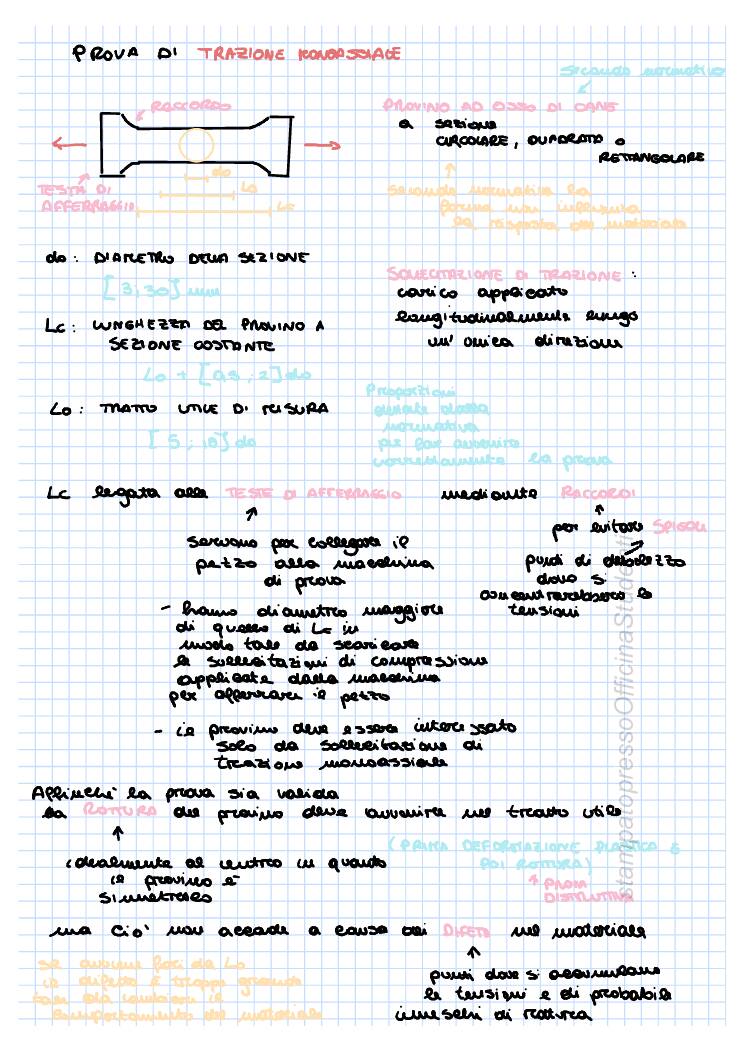 PROVA DI TRAZIONE MONOASSIALE
secondo normativa
RACCORDO
PROVINO AD OSSO DI CANE
a sezione
CIRCOLARE, QUADRATO o
RETTANGOLARE
do
Lo
Lc
TESTA DI
AFFERRAGGIO
secondo normativa la
forma non influenza
la risposta del materiale
do: DIAMETRO DELLA SEZIONE
[3; 30] mm
SOLLECITAZIONE DI TRAZIONE:
carico applicato
longitudinalmente lungo
un'unica direzione
Lc: LUNGHEZZA DEL PROVINO A
SEZIONE COSTANTE
Lo + [0,5; 2] do
Lo: TRATTO UTILE DI MISURA
[5; 10] do
Proporzioni
dalla
normativa
per far avvenire
correttamente la prova
Lc legata alle TESTE DI AFFERRAGGIO mediante RACCORDI
servono per collegare il
pezzo alla macchina
di prova
per evitare SPIGOLI
punti di debolezza
dove si
concentrerebbero le
tensioni
- hanno diametro maggiore
di quello di Lc in
modo tale da scaricare
le sollecitazioni di compressione
applicate dalla macchina
per afferrare il pezzo
- il provino deve essere interessato
solo da sollecitazione di
trazione monoassiale
Affinché la prova sia valida
la ROTTURA del provino deve avvenire nel tratto utile
(PRIMA DEFORMAZIONE PLASTICA E
POI ROTTURA)
PROVA
DISTRUTTIVA
idealmente al centro in quanto
il provino è
simmetrico
ma ciò non accade a causa dei DIFETTI nel materiale
se avviene fuori da Lo
il difetto è troppo grande
tale da cambiare il
comportamento del materiale
punti dove si accumulano
le tensioni e di probabile
inneschi di rottura
stampatopressoOfficinaStudenti